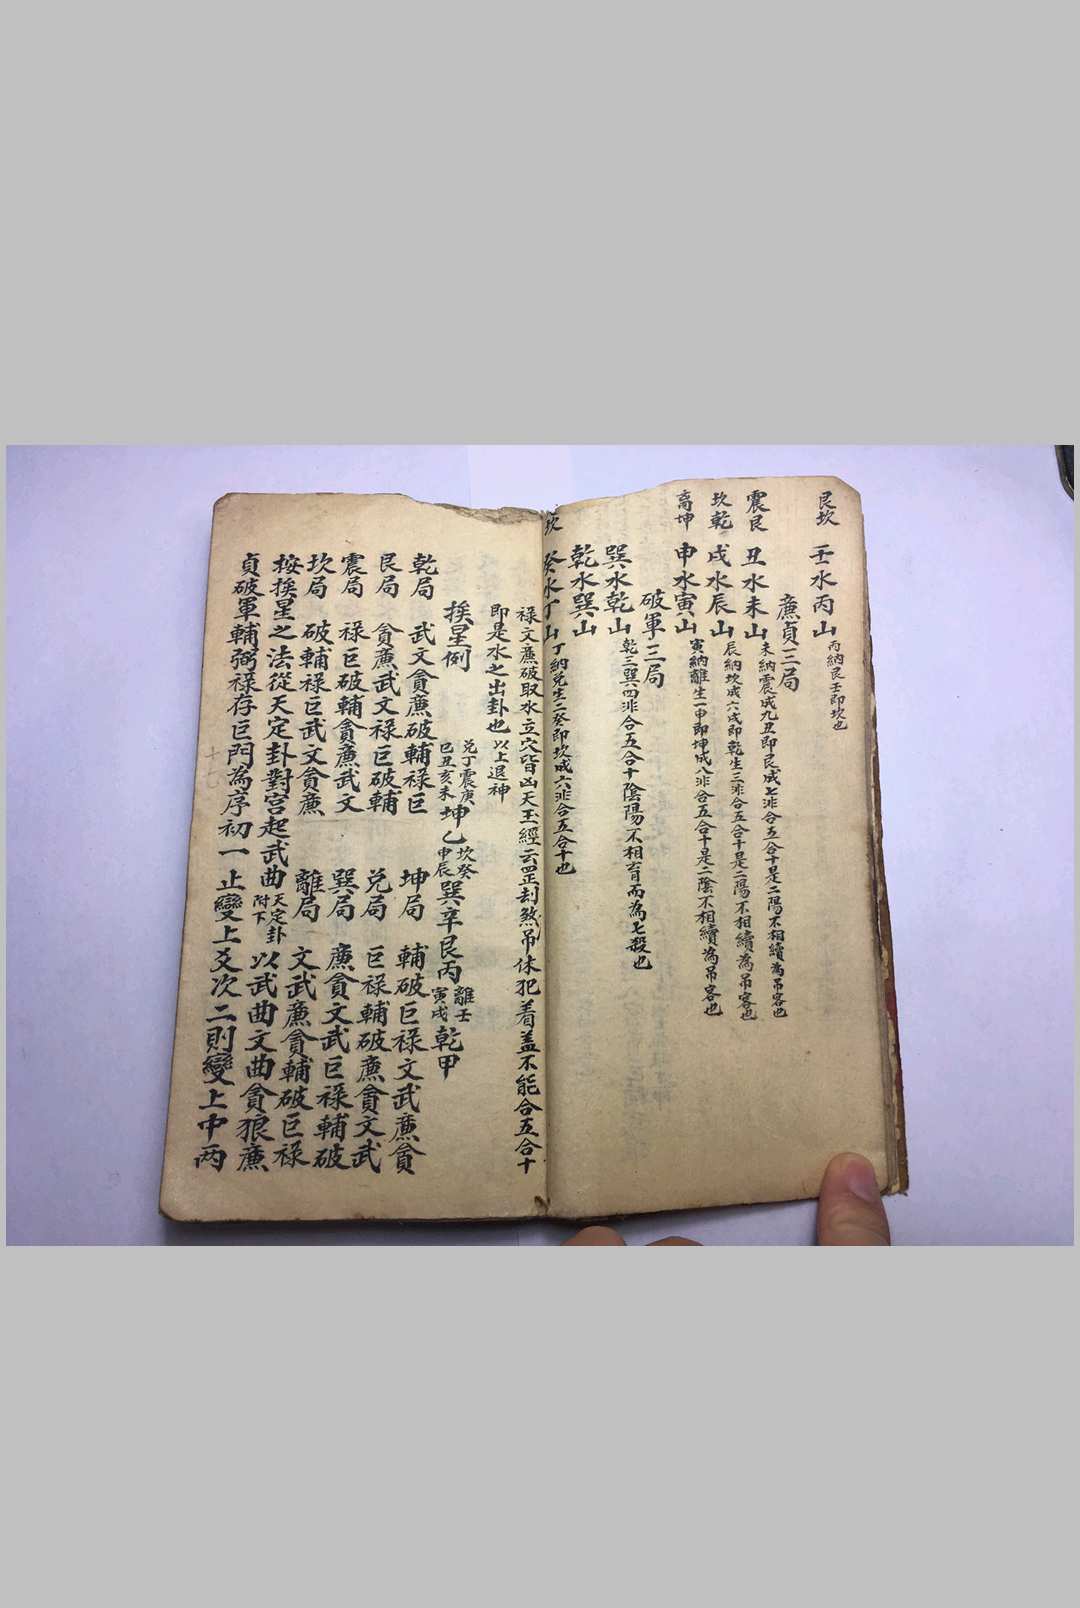 艮坎
壬水丙山 丙納艮壬即坎也
廉貞三局
震艮
丑水未山 未納震成九丑即艮成七非合五合十是二陽不相續為吊客也
坎乾
戌水辰山 辰納坎成六戌即乾生三非合五合十是二陽不相續為吊客也
离坤
申水寅山 寅納離生一申即坤成八非合五合十是二陰不相續為吊客也
破軍三局
巽水乾山 乾三巽四非合五合十陰陽不相育而為七殺也
乾水巽山
坎
癸水丁山 丁納兌生二癸即坎成六非合五合十也
禄文廉破取水立穴皆凶天玉經云罡刦煞吊休犯着盖不能合五合十
即是水之出卦也 以上退神
挨星例 兌丁震庚巳丑亥未坤乙坎癸申辰巽辛艮丙離壬寅戌乾甲
乾局 武文貪廉破輔禄巨 坤局 輔破巨禄文武廉貪
艮局 貪廉武文禄巨破輔 兌局 巨禄輔破廉貪文武
震局 禄巨破輔貪廉武文 巽局 廉貪文武巨禄輔破
坎局 破輔禄巨武文貪廉 離局 文武廉貪輔破巨禄
按挨星之法從天定卦對宮起武曲 天定卦附下 以武曲文曲貪狼廉
貞破軍輔弼禄存巨門為序初一止變上爻次二則變上中两